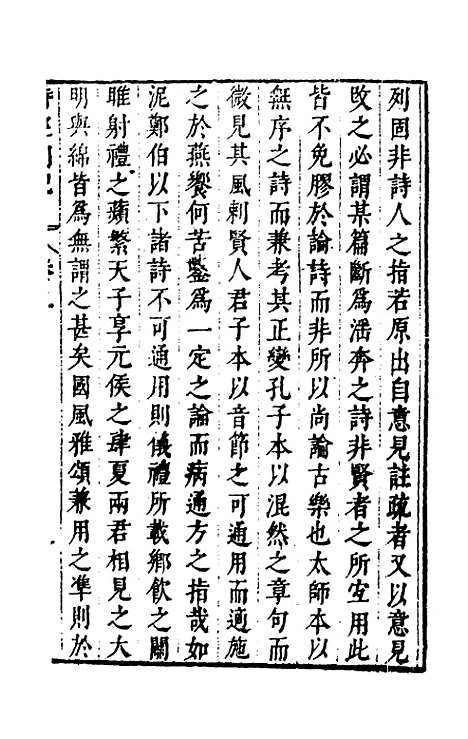 列固非詩人之指若原出自意見註疏者又以意見
改之必謂某篇斷爲淫奔之詩非賢者之所宜用此
皆不免膠於論詩而非所以尚論古樂也太師本以
無序之詩而兼考其正變孔子本以混然之章句而
微見其風刺賢人君子本以音節之可通用而適施
之於燕饗何苦鑿爲一定之論而病通方之指哉如
泥鄭伯以下諸詩不可通用則儀禮所載鄉飲之關
雎射禮之蘋蘩天子享元侯之肆夏兩君相見之大
明與緜皆爲無謂之甚矣國風雅頌兼用之準則於